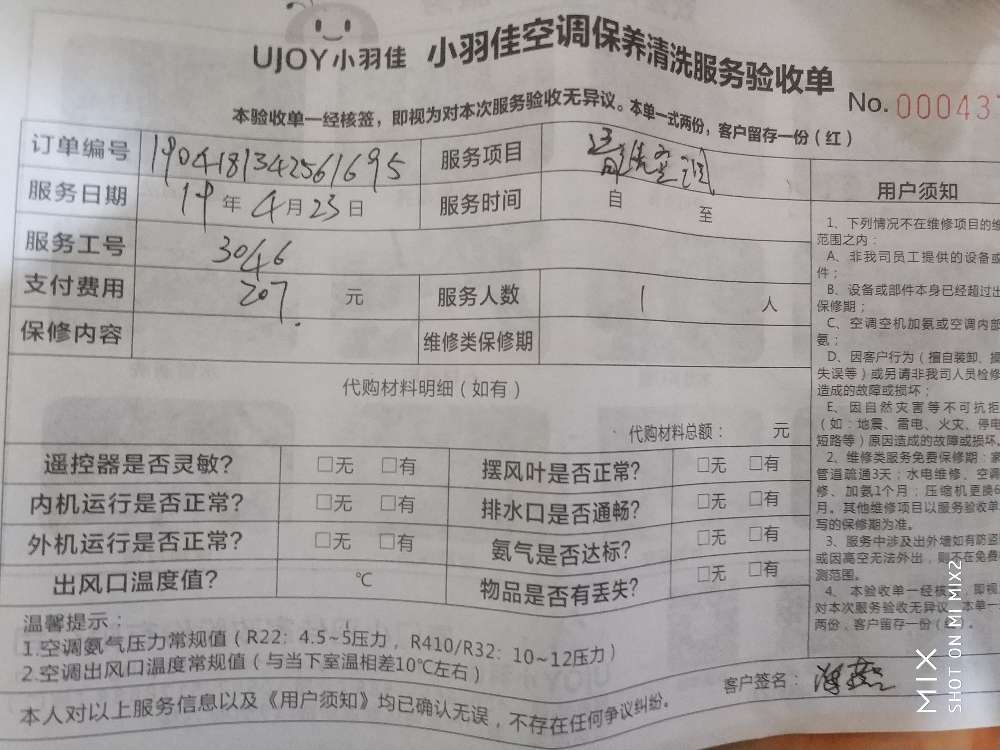 UJOY小羽佳
小羽佳空调保养清洗服务验收单
No. 000043
本验收单一经核签，即视为对本次服务验收无异议。本单一式两份，客户留存一份（红）
订单编号 190418134256169​5 服务项目
服务日期 19年4月23日 服务时间 自 至
服务工号 3046
支付费用 207. 元 服务人数 1 人
保修内容 维修类保修期
代购材料明细（如有）
代购材料总额： 元
遥控器是否灵敏？ □无 □有 摆风叶是否正常？ □无 □有
内机运行是否正常？ □无 □有 排水口是否通畅？ □无 □有
外机运行是否正常？ □无 □有 氨气是否达标？ □无 □有
出风口温度值？ ℃ 物品是否有丢失？ □无 □有
温馨提示：
1.空调氨气压力常规值（R22：4.5~5压力，R410/R32：10~12压力）
2.空调出风口温度常规值（与当下室温相差10℃左右）
客户签名：
本人对以上服务信息以及《用户须知》均已确认无误，不存在任何争议纠纷。
用户须知
1、下列情况不在维修项目的维
范围之内：
A、非我司员工提供的设备或
件；
B、设备或部件本身已经超过出
保修期；
C、空调空机加氨或空调内部
氨；
D、因客户行为（擅自装卸、损
失误等）或另请非我司人员检修
造成的故障或损坏；
E、因自然灾害等不可抗拒
（如：地震、雷电、火灾、停电
短路等）原因造成的故障或损坏。
2、维修类服务免费保修期：家
管道疏通3天；水电维修、空调
修、加氨1个月；压缩机更换6
月。其他维修项目以服务验收单
写的保修期为准。
3、服务中涉及出外墙如有防盗
或因高空无法外出，则不在免费
测范围。
4、本验收单一经核，即视
对本次服务验收无异议，本单一
两份，客户留存一份
MIX
SHOT ON MI MIX2